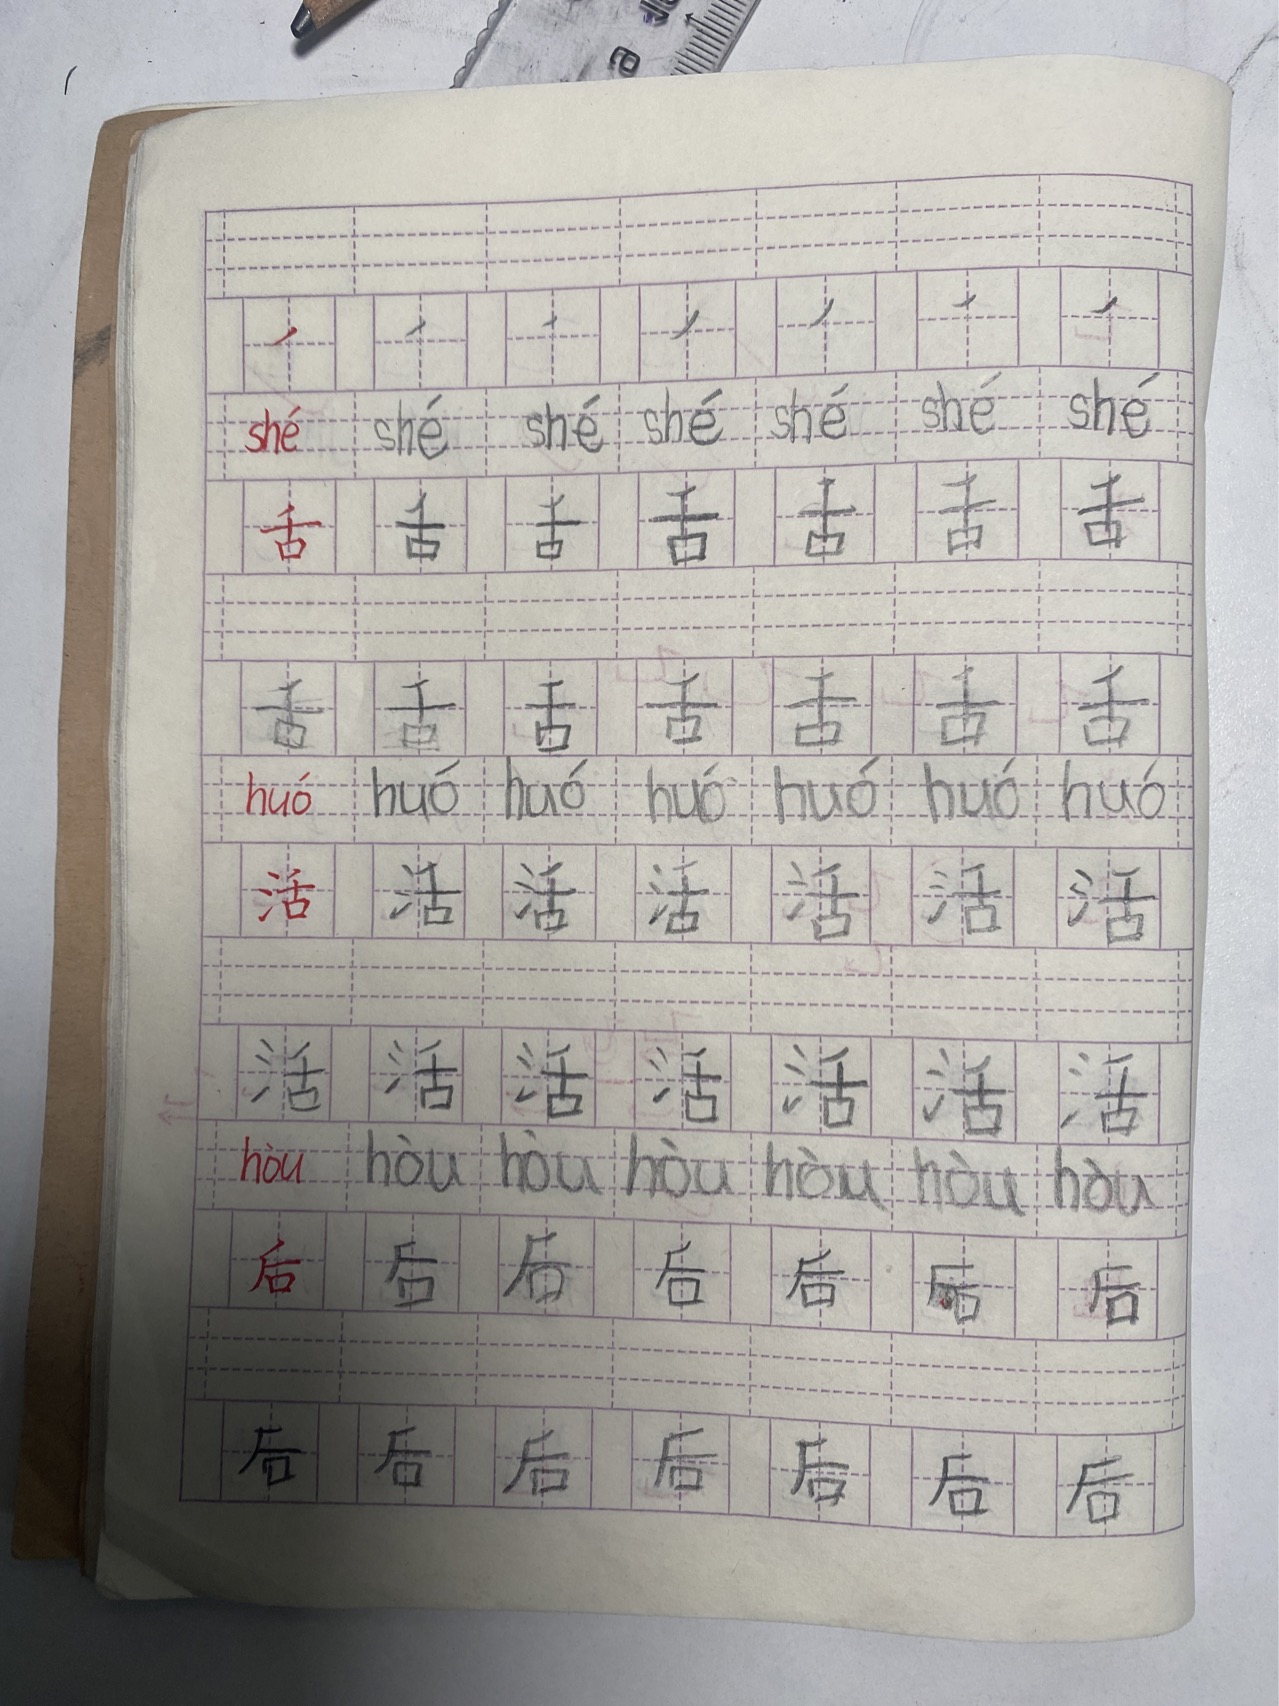 ㇒ ㇒ ㇒ ㇒ ㇒ ㇒ ㇒
shé shé shé shé shé shé shé
舌 舌 舌 舌 舌 舌 舌
舌 舌 舌 舌 舌 舌 舌
huó huó huó huó huó huó huó
活 活 活 活 活 活 活
活 活 活 活 活 活 活
hòu hòu hòu hòu hòu hòu hòu
后 后 后 后 后 后 后
后 后 后 后 后 后 后